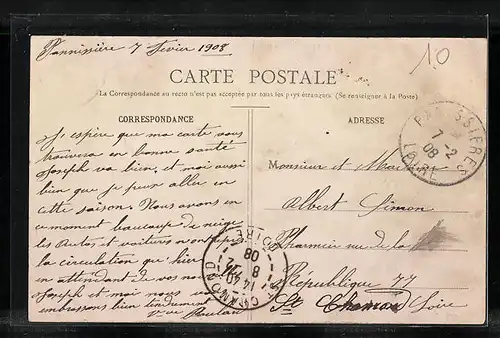 Pannissière 7 Fevier 1908
10
CARTE POSTALE
(La Correspondance au recto n'est pas acceptée par tous les pays étrangers. (Se renseigner à la Poste)
CORRESPONDANCE
J'espère que ma carte vous
trouvera en bonne santé
Joseph va bien, et moi aussi
bien que je peux aller en
cette saison. Nous avons en
ce moment beaucoup de neige
les Autos et voitures n'ont repris
la circulation que hier
en attendant de vos nouvelles
Joseph et moi nous vous
embrassons bien tendrement
Vve
ADRESSE
Monsieur et Madame
Albert Simon
Pharmacien rue de la
République 77
St Chamond Loire
PANISSIERES
7 - 2
08
LOIRE
ST CHAMOND
14 40
8 - 2
08
LOIRE